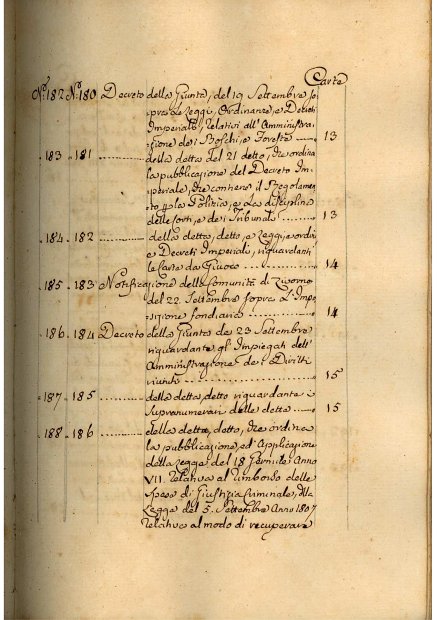 Carte
N.º 182 N.º 180 Decreto della Giunta, del 19 Settembre so
pra le Leggi, Ordinanze, e Decreti
Imperiali, relativi all'Amministra
zione dei Boschi, e Foreste 13
183 181 della detta del 21 detto, che ordina
la pubblicazione del Decreto Im
periale, che contiene il Regolamen
to p la Polizia, e La disciplina
delle Corti, e dei Tribunali 13
184 182 della detta, detto, e Leggi, e ordini
e Decreti Imperiali, riguardanti
le Carte da Giuoco 14
185 183 Notificazione della Comunità di Livorno
del 22 Settembre sopra L'Impo
sizione fondiaria 14
186 184 Decreto della Giunta de 23 Settembre
riguardante gl'Impiegati dell'
Amministrazione dei Diritti
riuniti 15
187 185 della detta, detto riguardante i
Supranumerari delle detta 15
188 186 della detta, detto, che ordina
la pubblicazione, ed Applicazione
della Legge del 18 Germile Anno
VII. relativa al rimborso delle
Spese di Giustizia Criminale, della
Legge del 5. Settembre Anno 1807
relativa al modo di recuperare